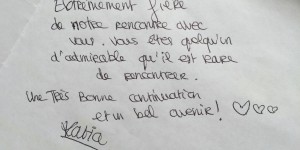 Extrêmement fière
de notre rencontre avec
vous. Vous êtes quelqu'un
d'admirable qu'il est rare
de rencontrer.
Une Très Bonne continuation
et un bel avenir!
Katia